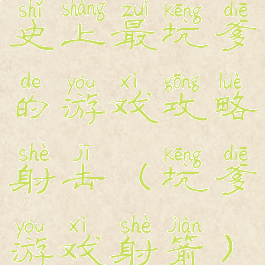 shǐ shàng zuì kēng diē
史上最坑爹
de you xì gōng lüè
的游戏攻略
shè jī kēng diē
射击（坑爹
you xì shè jiàn
游戏射箭）